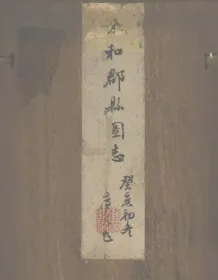 元和郡縣圖志
癸亥初冬